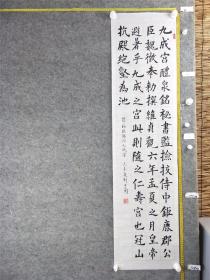 九成宮醴泉銘秘書監撿挍侍中鉅鹿郡公
臣魏徵奉勅撰維貞觀六年孟夏之月皇帝
避暑乎九成之宮此則隨之仁壽宮也冠山
抗殿絶壑為池